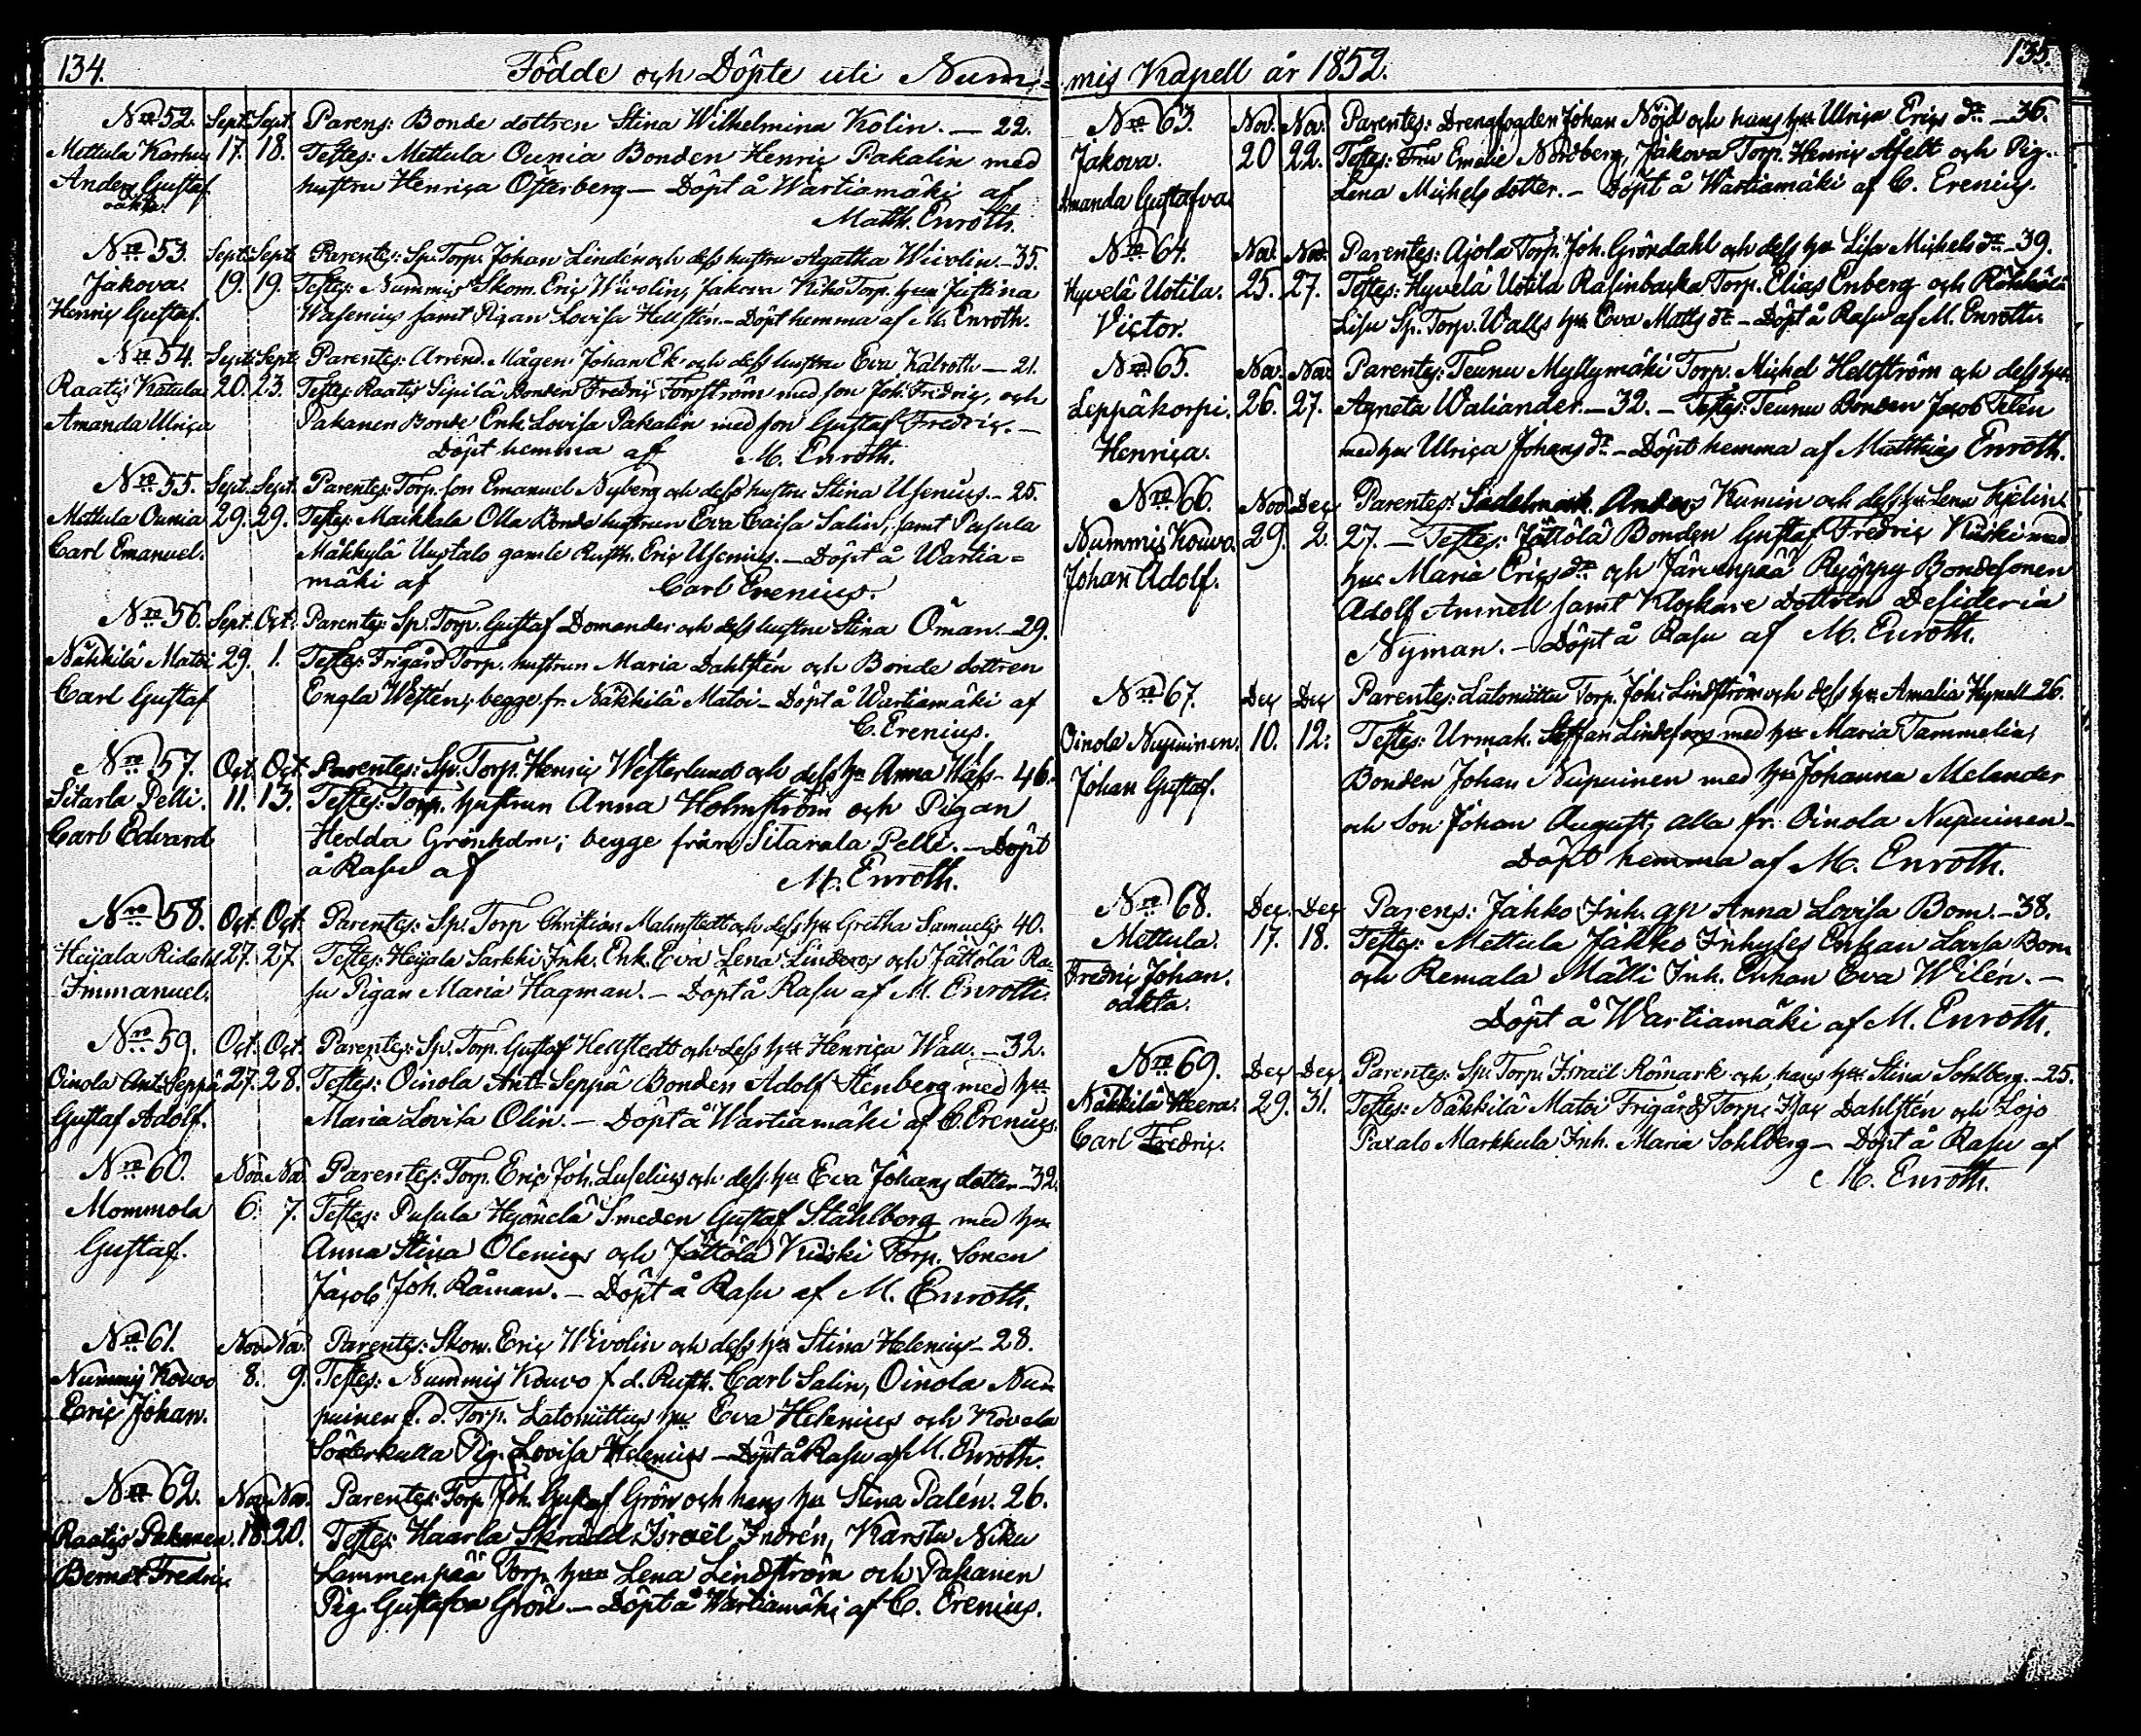 134.
Födde och Döpte uti Num-
Nro 52. Sept. Sept. Parens: Bonde dottren Stina Wilhelmina Kolin. — 22.
Mettula Karhu 17. 18. Testes: Mettula Ounia Bonden Henric Pakalin med
Anders Gustaf hustru Henrica Österberg — Döpt å Wartiamäki af
oäkta. Matth. Enroth.
Nro 53. Sept. Sept. Parentes: Sp. Torp. Johan Lindén och dess hustru Agatha Wivolin — 35.
Jakova. 19. 19. Testes: Nummis Skom. Eric Wivolin, Jakova Kiho Torp. hu Justina
Henric Gustaf. Wasenius samt Pigan Lovisa Hellstén. — Döpt hemma af M. Enroth.
Nro 54. Sept. Sept. Parentes: Arrend. Mågen Johan Ek och dess hustru Eva Kalroth — 21.
Raatis Katula 20. 23. Testes: Raatis Sipilä Bonden Fredric Forsström med son Joh. Fredric, och
Amanda Ulrica Pakanen Bonde Enk. Lovisa Pakalin med son Gustaf Fredric. —
Döpt hemma af M. Enroth.
Nro 55. Sept. Sept. Parentes: Torp. son Emanuel Nyberg och dess hustru Stina Usenius. — 25.
Mettula Ounia 29. 29. Testes: Maikkala Olla Bonde hustrun Eva Caisa Salin, samt Pusula
Carl Emanuel. Mäkkylä Uustalo gamle Rusth. Eric Usenius. — Döpt å Wartia=
mäki af Carl Erenius.
Nro 56. Sept. Oct. Parentes: Sp. Torp. Gustaf Domander och dess hustru Stina Öman. — 29.
Näkkilä Matoi 29. 1. Testes: Frigård Torp. hustrun Maria Dahlstén och Bonde dottren
Carl Gustaf Engla Westén; begge fr. Näkkilä Matoi — Döpt å Wartiamäki af
C. Erenius.
Nro 57. Oct. Oct. Parentes: Sp. Torp. Henric Westerlund och dess hu Anna Wass — 46.
Sitarla Pelli. 11. 13. Testes: Torp. hustrun Anna Holmström och Pigan
Carl Edvard Hedda Grönholm; begge från Sitarala Pelli. — Döpt
å Rasu af M. Enroth.
Nro 58. Oct. Oct. Parentes: Sp. Torp Christian Malmstedt och dess hu Gretha Samuelis 40.
Heijala Ridal 27. 27. Testes: Heijala Sarkki Inh. Enk. Eva Lena Linderos och Jättölä Ra=
Immanuel. su Pigan Maria Hagman. — Döpt å Rasu af M. Enroth.
Nro 59. Oct. Oct. Parentes: Sp. Torp. Gustaf Hellstedt och dess hu Henrica Wall. — 32.
Oinola Ant. Seppä 27. 28. Testes: Oinola Ant. Seppä Bonden Adolf Stenberg med hu
Gustaf Adolf. Maria Lovisa Olin. — Döpt å Wartiamäki af C. Erenius.
Nro 60. Nov. Nov. Parentes: Torp. Eric Joh. Luselius och dess hu Eva Johans dotter — 32.
Mommola 6. 7. Testes: Pusula Hyönelä Smeden Gustaf Ståhlborg med hu
Gustaf. Anna Stina Olenius och Jättölä Kuiski Torp. Sonen
Jacob Joh. Råman. — Döpt å Rasu af M. Enroth.
Nro 61. Nov. Nov. Parentes: Skom. Eric Wivolin och dess hu Stina Helenius — 28.
Nummis Kouvo 8. 9. Testes: Nummis Kouvo f. d. Rusth. Carl Salin, Oinola Nu-
Eric Johan. puinen f. d. Torp. Latoniittus hu Eva Helenius och Kovela
Söderkulla Pig. Lovisa Helenius — Döpt å Rasu af M. Enroth.
Nro 62. Nov. Nov. Parentes: Torp. Joh. Gustaf Grön och hans hu Stina Palén. 26.
Raatis Pakanen. 18. 20. Testes: Haarla Skrädd. Israël Indrén, Karstu Niku
Berndt Fredric Lammenpää Torp. hu Lena Lindström och Pakanen
Pig. Gustafva Grön — Döpt å Wartiamäki af C. Erenius.
135.
mis Kapell år 1852.
Nro 63. Nov. Nov. Parentes: Drengfogden Johan Nöjd och hans hu Ulrica Erics dr — 36.
Jakova. 20 22. Testes: Fru Emelie Nordberg, Jakova Torp. Henric Åfelt och Pig.
Amanda Gustafva. Lena Michels dotter. — Döpt å Wartiamäki af C. Erenius.
Nro 64. Nov. Nov. Parentes: Ajola Torp. Joh. Gröndahl och dess hu Lisa Michels dr — 39.
Hyvelä Uotila. 25. 27. Testes: Hyvelä Uotila Rasinbacka Torp. Elias Enberg och Räkkölä
Victor. Lisu Sp. Torp. Walls hu Eva Matts dr — Döpt å Rasu af M. Enroth.
Nro 65. Nov. Nov. Parentes: Teunu Myllymäki Torp. Michel Hellström och dess hu
Leppäkorpi. 26. 27. Agneta Waliander. — 32. — Testes: Teunu Bonden Jacob Telén
Henrica. med hu Ulrica Johans dr — Döpt hemma af Matthias Enroth.
Nro 66. Nov. Dec. Parentes: Sadelmak. Anders Kumin och dess hu Lena Kjelin.
Nummis Kouvo. 29. 2. 27. — Testes: Jättölä Bonden Gustaf Fredric Kuiski med
Johan Adolf. hu Maria Erics dr och Järvenpää Ryöppy Bondesonen
Adolf Amnell samt Klockare dottren Desideria
Nyman. — Döpt å Rasu af M. Enroth.
Nro 67. Dec. Dec. Parentes: Latoniittu Torp. Joh. Lindström och dess hu Amalia Hynell 26.
Oinola Nupuinen. 10. 12. Testes: Urmak. Staffan Lindefors med hu Maria Tammelin,
Johan Gustaf. Bonden Johan Nupuinen med hu Johanna Melander
och Son Johan August, alla fr. Oinola Nupuinen —
Döpt hemma af M. Enroth.
Nro 68. Dec. Dec. Parens: Jahko Inh. qp Anna Lovisa Bom. — 38.
Mettula. 17. 18. Testes: Mettula Jakko Inhyses Enkan Lovisa Bom
Fredric Johan. och Remala Mälli Inh. Enkan Eva Wilén. —
oäkta. Döpt å Wartiamäki af M. Enroth.
Nro 69. Dec. Dec. Parentes: Sp. Torp. Israël Römark och hans hu Stina Sohlberg. — 25.
Näkkilä Heera. 29. 31. Testes: Näkkilä Matoi Frigårds Torp. Isac Dahlsten och Lojo
Carl Fredric. Paxalo Markkula Inh. Maria Sohlberg — Döpt å Rasu af
M. Enroth.